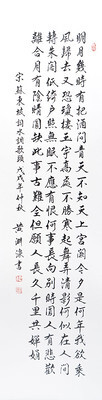 明月幾時有把酒問青天不知天上宮闕今夕是何年我欲乘
風歸去又恐瓊樓玉宇高處不勝寒起舞弄清影何似在人間
轉朱閣低綺戶照無眠不應有恨何事長向別時圓人有悲歡
離合月有陰晴圓缺此事古難全但願人長久千里共嬋娟
宋蘇東坡詞水調歌頭戊戌年仲秋 黄 書